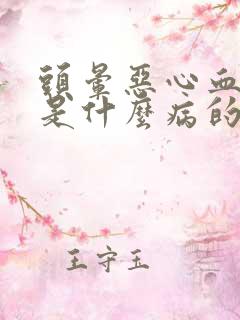 頭暈惡心血
是什麼病的
王守玉